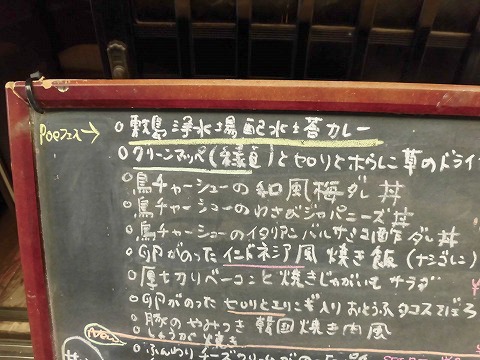 Poeフェス→ ○敷島浄水場配水塔カレー
○グリーンアッパ(緑貞)とセロリとほうれん草のドライ
○鳥チャーシューの和風梅ダレ丼
○鳥チャーシューのわさびジャパニーズ丼
○鳥チャーシューのイタリアンバルサミコ酢ダレ丼
○卵がのったインドネシア風焼き飯(ナシゴレン)
○厚切りベーコンと焼きじゃがいもサラダ
○卵がのったセロリとエリンギ入りおとうふタコスそぼろ
○豚のやみつき韓国焼き肉風
しょうが焼き
○ふんわりチーズクリームがのった